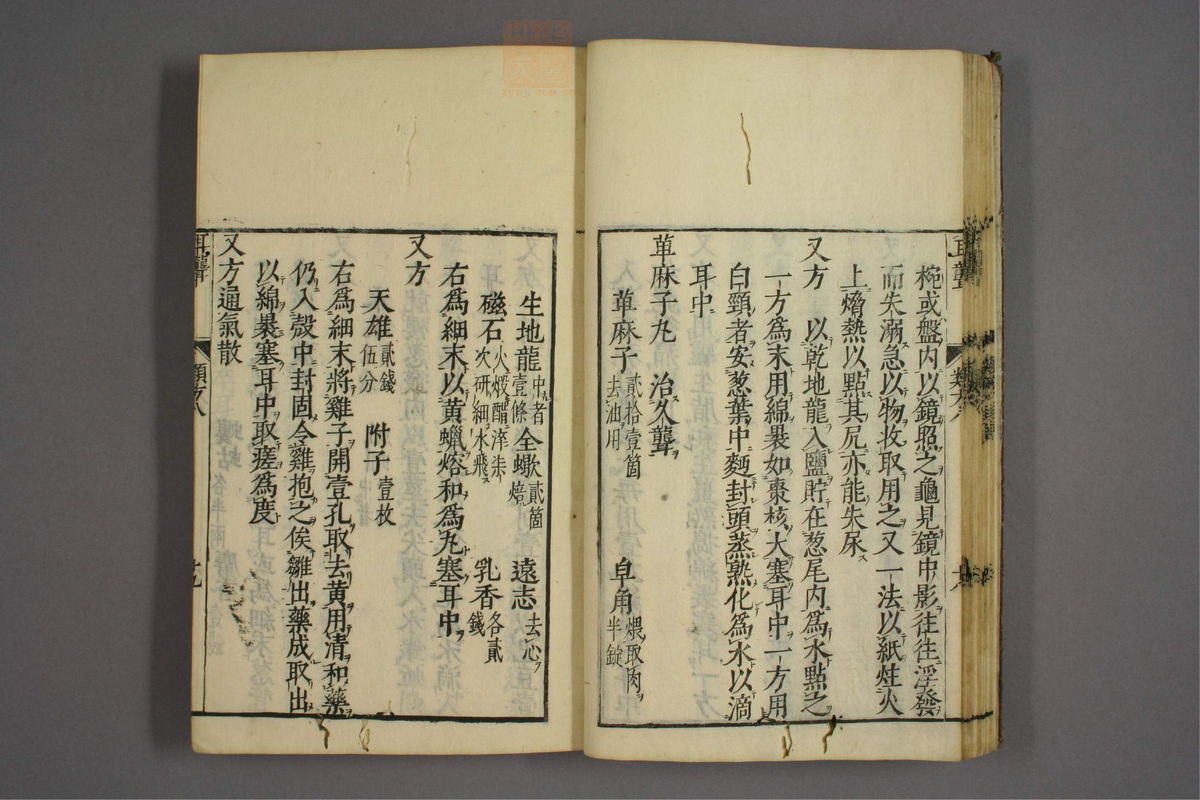 椀或盤內以鏡照之龜見鏡中影往往淫發
而失溺急以物收取用之又一法以紙炷火
上熁熱以點其尻亦能失尿
又方 以乾地龍入鹽貯在葱尾內為水點之
一方為末用綿褁如棗核大塞耳中一方用
白頸者安葱葉中麵封頭蒸熟化為水以滴
耳中
萆麻子丸 治久聾
萆麻子 貳拾壹箇去油用 皁角 煨取肉半錠
生地龍 中者壹條 全蠍 貳箇焙 遠志 去心
磁石 火煅醋淬柒次研細水飛 乳香 各貳錢
右為細末以黃蠟熔和為丸塞耳中
又方
天雄 貳錢伍分 附子 壹枚
右為細末將雞子開壹孔取去黃用清和藥
仍入殼中封固令雞抱之俟雛出藥成取出
以綿褁塞耳中取瘥為度
又方通氣散
耳聾
類八